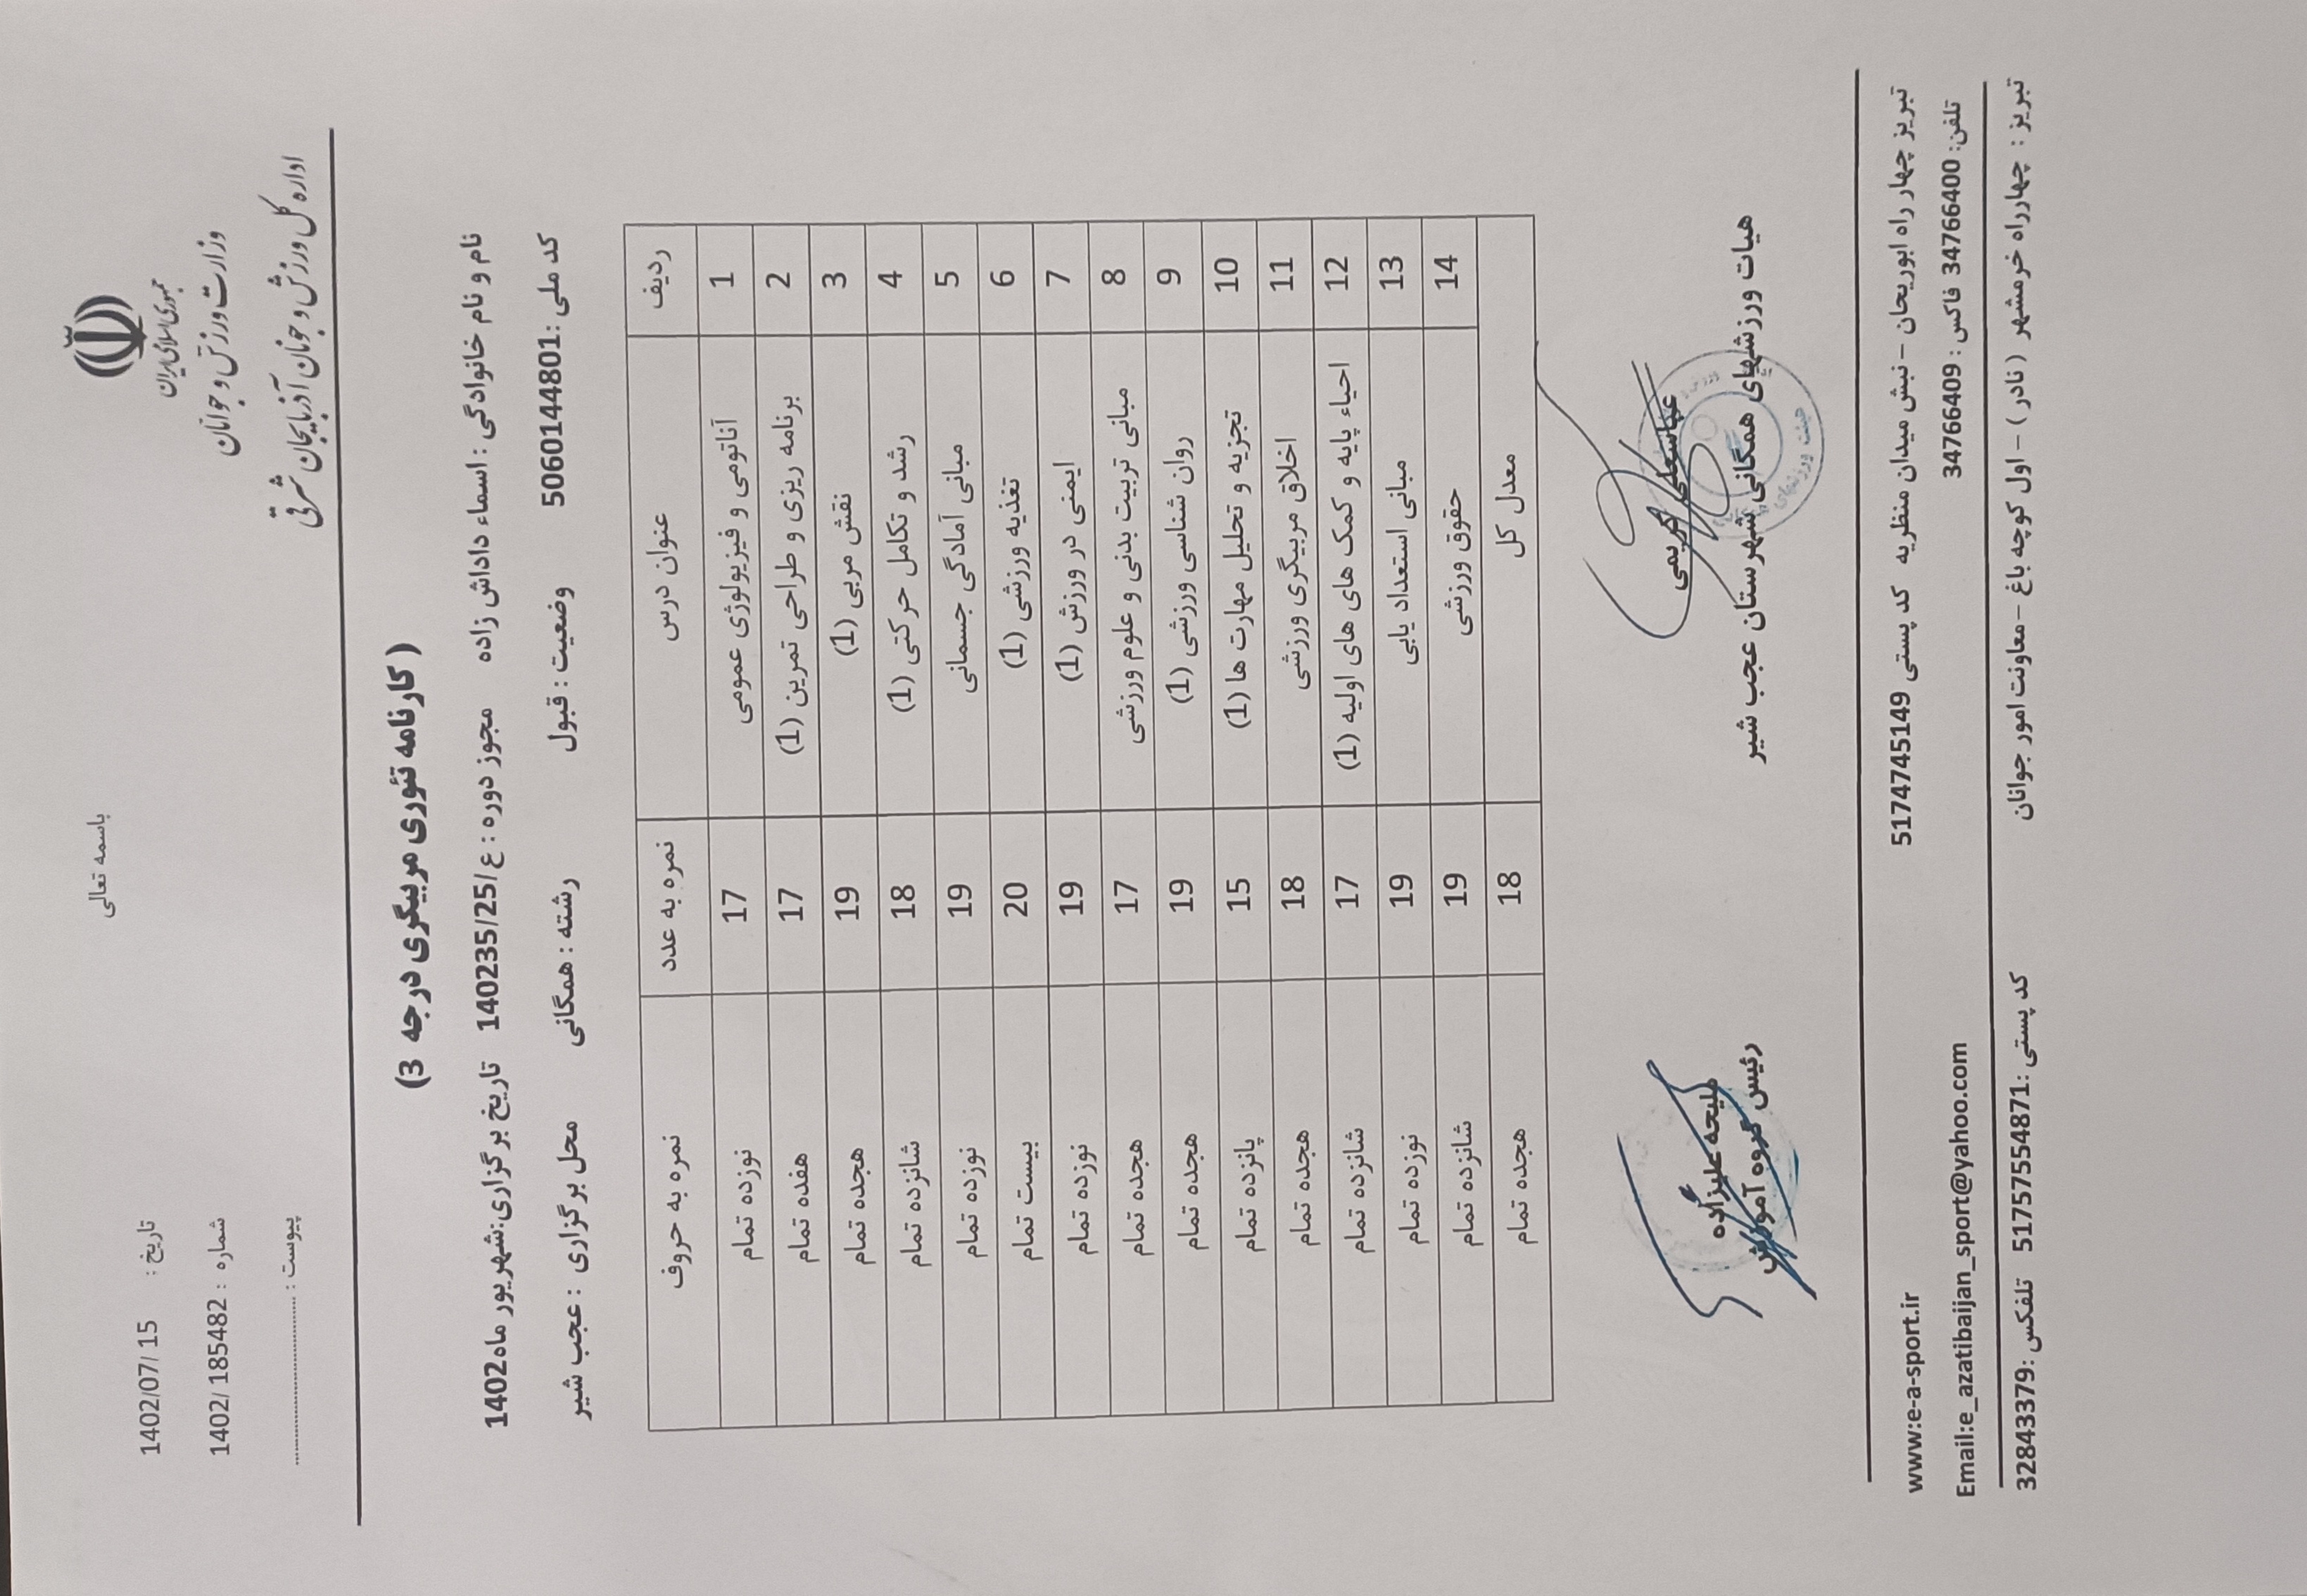 باسمه تعالی
جمهوری اسلامی ایران
وزارت ورزش و جوانان
اداره کل ورزش و جوانان آذربایجان شرقی
تاریخ : 1402/07/ 15
شماره : 1402/ 185482
پیوست : ........................................
(کارنامه تئوری مربیگری درجه 3)
نام و نام خانوادگی : اسماء داداش زاده مجوز دوره : ع/140235/25 تاریخ برگزاری:شهریور ماه1402
کد ملی :5060144801 وضعیت : قبول رشته : همگانی محل برگزاری : عجب شیر
ردیف عنوان درس نمره به عدد نمره به حروف
1 آناتومی و فیزیولوژی عمومی 17 نوزده تمام
2 برنامه ریزی و طراحی تمرین (1) 17 هفده تمام
3 نقش مربی (1) 19 هجده تمام
4 رشد و تکامل حرکتی (1) 18 شانزده تمام
5 مبانی آمادگی جسمانی 19 نوزده تمام
6 تغذیه ورزشی (1) 20 بیست تمام
7 ایمنی در ورزش (1) 19 نوزده تمام
8 مبانی تربیت بدنی و علوم ورزشی 17 هجده تمام
9 روان شناسی ورزشی (1) 19 هجده تمام
10 تجزیه و تحلیل مهارت ها (1) 15 پانزده تمام
11 اخلاق مربیگری ورزشی 18 هجده تمام
12 احیاء پایه و کمک های اولیه (1) 17 شانزده تمام
13 مبانی استعداد یابی 19 نوزده تمام
14 حقوق ورزشی 19 شانزده تمام
معدل کل 18 هجده تمام
عباسعلی کریمی ملیحه علیزاده
هیات ورزشهای همگانی شهرستان عجب شیر رئیس گروه آموزش
تبریز چهار راه ابوریحان – نبش میدان منظریه کد پستی 5174745149 www:e-a-sport.ir
تلفن: 34766400 فاکس : 34766409 Email:e_azatibaijan_sport@yahoo.com
تبریز : چهارراه خرمشهر (نادر) – اول کوچه باغ –معاونت امور جوانان کد پستی :5175754871 تلفکس :32843379